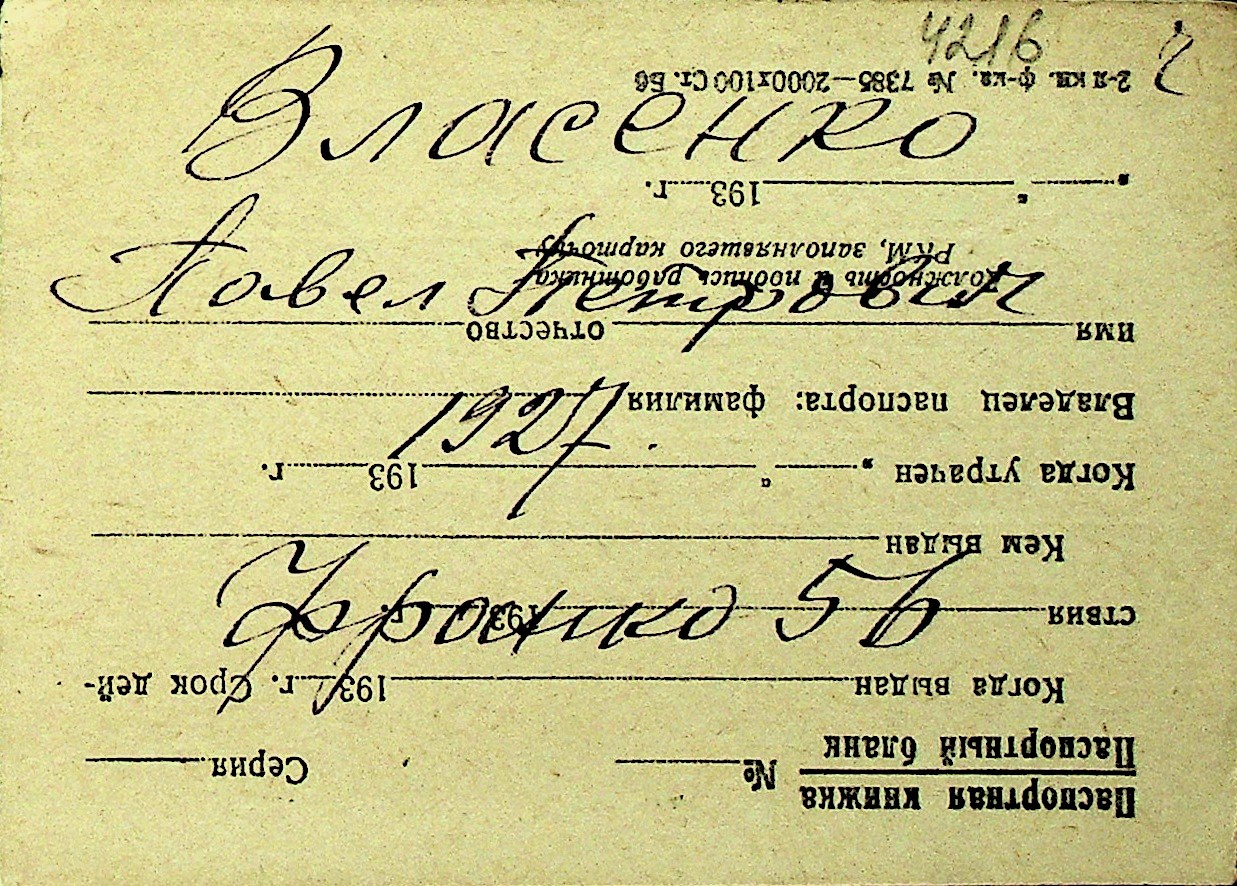 4216 ч
Власенко
Павел Петрович
1927
Франко 56
Паспортная книжка
Паспортный бланк № Серия
Когда выдан 193 г. Срок дей-
ствия 193 г.
Кем выдан
Когда утрачен „ “ 193 г.
Владелец паспорта: фамилия
имя отчество
Должность и подпись работника
РКМ, заполнявшего карточку
„ “ 193 г.
2-я кн. ф-ка. № 7385—2000х100 Ст. Б6